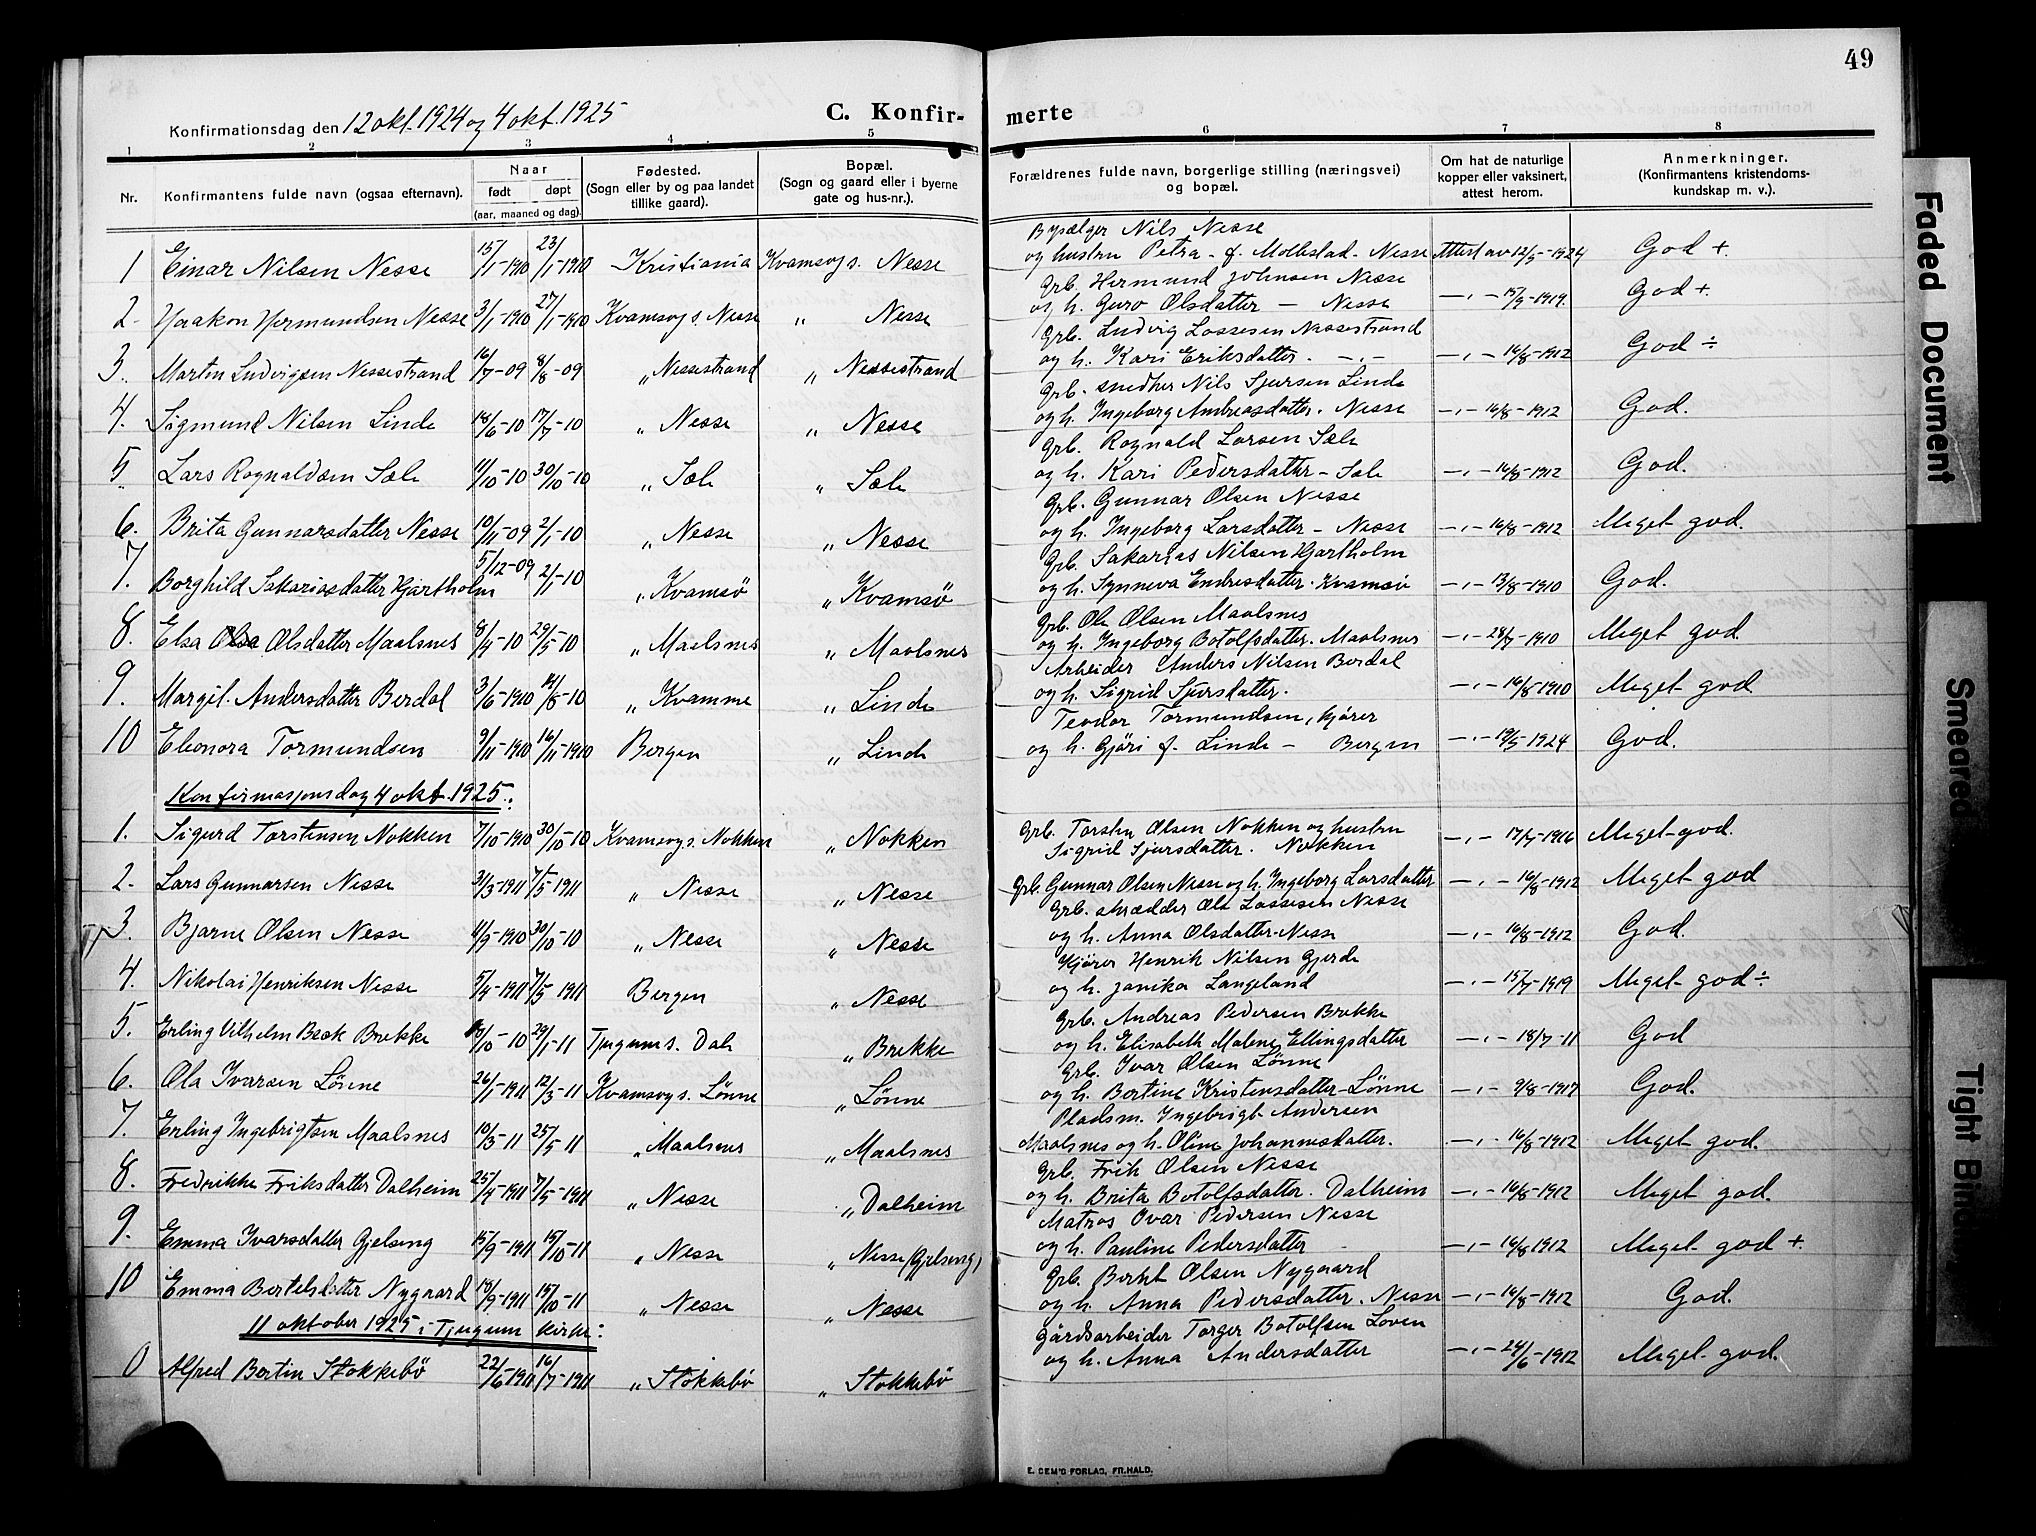 49
Konfirmationsdag den 12 okt. 1924 og 4 okt. 1925
C. Konfir- merte
1 2 3 4 5 6 7 8
Nr. Konfirmantens fulde navn (ogsaa efternavn). Naar født døpt (aar, maaned og dag). Fødested. (Sogn eller by og paa landet tillike gaard). Bopæl. (Sogn og gaard eller i byerne gate og hus-nr.). Forældrenes fulde navn, borgerlige stilling (næringsvei) og bopæl. Om hat de naturlige kopper eller vaksinert, attest herom. Anmerkninger. (Konfirmantens kristendoms- kundskap m. v.).
Bysælger Nils Nesse
1 Einar Nilsen Nesse 15/1-1910 23/1-1910 Kristiania Kvamsøy s. Nesse og hustru Petra f. Molbstad - Nesse Attest av 12/5-1924 God +
Grb. Hermund Johnsen Nesse
2. Haakon Hermundsen Nesse 3/1-1910 27/1-1910 Kvamsøy s. Nesse „ Nesse og h. Guro Olsdatter - Nesse -„- 15/9-1919. God +
Grb. Ludvig Lassesen Nessestrand
3. Martin Ludvigsen Nessestrand 16/7-09 8/8-09 „ Nessestrand „ Nessestrand og h. Kari Eriksdatter. -„- -„- 16/8-1912 God ÷
Grb. snedker Nils Sjursen Linde
4. Sigmund Nilsen Linde 18/6-10 17/7-10 „ Nesse „ Nesse og h. Ingeborg Andreasdatter. Nesse -„- 16/8-1912 God.
Grb. Rognald Larsen Sæle
5. Lars Rognaldsen Sæle 11/10-10 30/10-10 „ Sæle „ Sæle og h. Kari Pedersdatter - Sæle -„- 16/8-1912 God.
Grb. Gunnar Olsen Nesse
6. Brita Gunnarsdatter Nesse 10/11-09 2/1-10 „ Nesse „ Nesse og h. Ingeborg Larsdatter - Nesse -„- 16/8-1912 Meget god.
Grb. Sakarias Nilsen Hjartholm
7. Borghild Sakariasdatter Hjartholm 5/12-09 2/1-10 „ Kvamsø „ Kvamsø og h. Synneva Endresdatter. Kvamsø -„- 13/8-1910 God.
Grb. Ole Olsen Maalsnes
8. Elsa Olsdatter Maalsnes 8/4-10 29/5-10 „ Maalsnes „ Maalsnes og h. Ingeborg Botolfsdatter. Maalsnes -„- 28/7-1910 Meget god
Arbeider Anders Nilsen Berdal
9. Margit Andersdatter Berdal 3/6-1910 14/8-10 „ Kvamme „ Linde og h. Sigrid Sjursdatter. -„- 16/8-1910 Meget god
Teodor Tormundsen, kjører
10 Eleonora Tormundsen 9/11-1910 16/11-1910 Bergen „ Linde og h. Gjøri f. Linde - Bergen -„- 19/5-1924 God.
Konfirmasjonsdag 4 okt. 1925.:
1. Sigurd Torstensen Nokken 7/10-1910 30/10-10 Kvamsøy s. Nokken „ Nokken Grb. Torsten Olsen Nokken og hustru -„- 17/7-1916 Meget god.
Sigrid Sjursdatter. Nokken
2. Lars Gunnarsen Nesse 3/3-1911 7/5-1911 „ Nesse „ Nesse Grb. Gunnar Olsen Nesse og h. Ingeborg Larsdatter -„- 16/8-1912 Meget god
Grb. skrædder Ole Lassesen Nesse
3. Bjarne Olsen Nesse 4/9-1910 30/10-10 „ Nesse „ Nesse og h. Anna Olsdatter - Nesse -„- 16/8-1912 God.
Kjører Henrik Nilsen Gjerde
4. Nikolai Henriksen Nesse 5/4-1911 7/5-1911 Bergen „ Nesse og h. Janika Langeland -„- 15/7-1919 Meget god ÷
Grb. Andreas Pedersen Brekke
5. Erling Vilhelm Bæk Brekke 10/10-10 29/1-11 Tjugum s. Dale „ Brekke og h. Elisabeth Malene Ellingsdatter -„- 18/7-11 God
Grb. Ivar Olsen Lønne
6. Ola Ivarsen Lønne 26/1-1911 12/3-11 Kvamsøy s. Lønne „ Lønne og h. Bertine Kristensdatter - Lønne -„- 9/8-1917 God.
Pladsm. Ingebrigt Andersen
7. Erling Ingebrigtsen Maalsnes 10/3-11 25/5-11 „ Maalsnes „ Maalsnes Maalsnes og h. Oline Johannesdatter. -„- 16/8-1912 Meget god.
Grb. Erik Olsen Nesse
8. Fredrikke Eriksdatter Dalheim 25/4-1911 7/5-1911 „ Nesse „ Dalheim og h. Brita Botolfsdatter. Dalheim -„- 16/8-1912 Meget god.
Matros Ivar Pedersen Nesse
9. Emma Ivarsdatter Gjelseng 15/9-1911 15/10-11 „ Nesse „ Nesse (Gjelseng) og h. Pauline Pedersdatter -„- 16/8 1912 Meget god +
Grb. Bertel Olsen Nygaard
10 Emma Bertelsdatter Nygaard 18/9-1911 15/10-11 „ Nesse „ Nesse og h. Anna Pedersdatter. Nesse -„- 16/8-1912 God.
11 oktober 1925 i Tjugum kirke:
Gårdsarbeider Torger Botolfsen Loven
0 Alfred Bertin Stokkebø 22/6-1911 16/7-1911 „ Stokkebø „ Stokkebø og h. Anna Andersdatter -„- 24/6-1912 Meget god.
E. SEM'S FORLAG, FR.HALD.
Faded Document
Smeared
Tight Bin